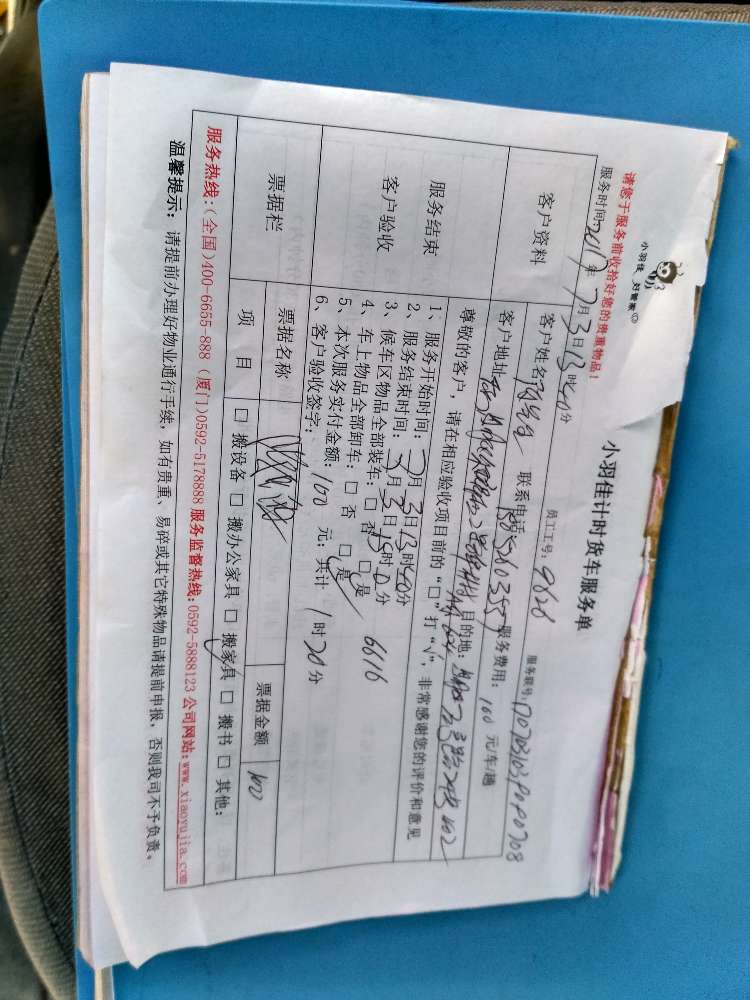 小羽佳 好管家
小羽佳计时货车服务单
请您于服务前收拾好您的贵重物品!
员工工号: 9626
服务联号:
服务时间: 2017年7月3日13时40分
客户资料
客户姓名
联系电话
服务费用: 100 元/车/趟
客户地址:
目的地:
尊敬的客户, 请在相应验收项目前的“□”打“√”, 非常感谢您的评价和意见
服务结束
客户验收
1、服务开始时间: 7月3日13时40分
2、服务结束时间: 7月3日15时0分
3、候车区物品全部装车: □ 否 □ 是
4、车上物品全部卸车: □ 否 □ 是 6616
5、本次服务实付金额: 100 元; 共计 1时20分
6、客户验收签字:
票据栏
票据名称
票据金额
100
项 目
□ 搬设备 □ 搬办公家具 □ 搬家具 □ 搬书 □ 其他:
服务热线: (全国)400-6655-888 (厦门)0592-5178888 服务监督热线: 0592-5888123 公司网站: www.xiaoyujia.com
温馨提示: 请提前办理好物业通行手续, 如有贵重、易碎或其它特殊物品请提前申报, 否则我司不予负责。